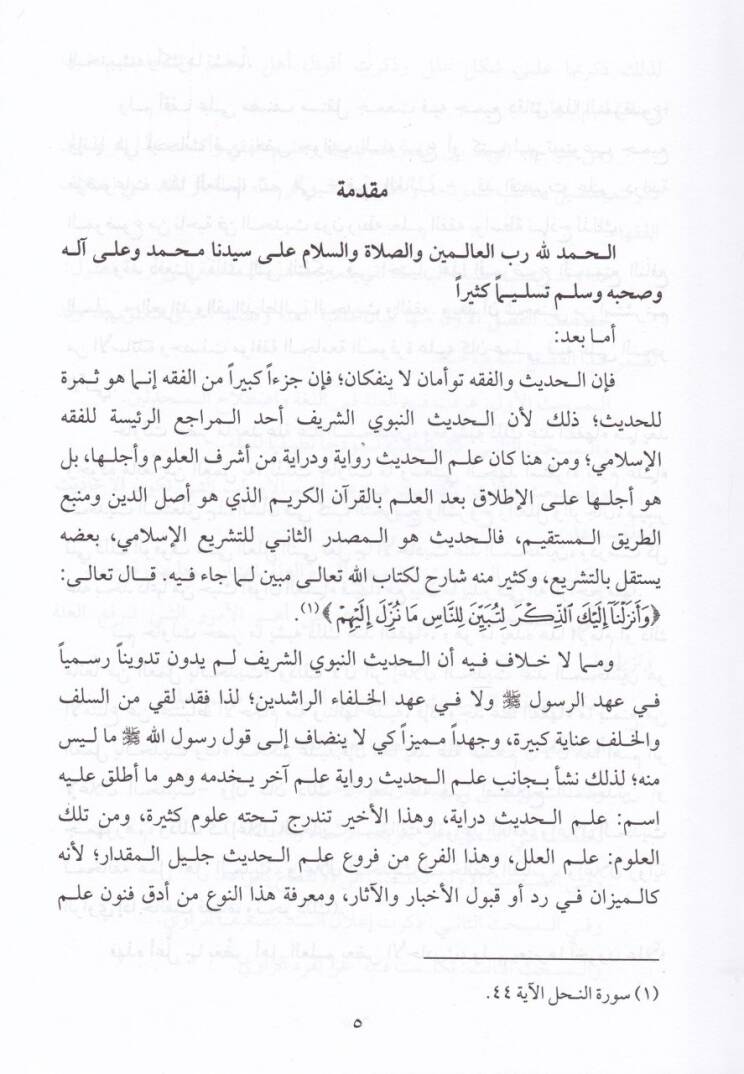 مقدمة
الحمد لله رب العالمين والصلاة والسلام على سيدنا محمد وعلى آله
وصحبه وسلم تسليماً كثيراً
أما بعد:
فإن الحديث والفقه توأمان لا ينفكان؛ فإن جزءاً كبيراً من الفقه إنما هو ثمرة
للحديث؛ ذلك لأن الحديث النبوي الشريف أحد المراجع الرئيسة للفقه
الإسلامي؛ ومن هنا كان علم الحديث رواية ودراية من أشرف العلوم وأجلها، بل
هو أجلها على الإطلاق بعد العلم بالقرآن الكريم الذي هو أصل الدين ومنبع
الطريق المستقيم، فالحديث هو المصدر الثاني للتشريع الإسلامي، بعضه
يستقل بالتشريع، وكثير منه شارح لكتاب الله تعالى مبين لما جاء فيه. قال تعالى:
﴿وَأَنزَلْنَآ إِلَيْكَ ٱلذِّكْرَ لِتُبَيِّنَ لِلنَّاسِ مَا نُزِّلَ إِلَيْهِمْ﴾(١).
ومما لا خلاف فيه أن الحديث النبوي الشريف لم يدون تدويناً رسمياً
في عهد الرسول ﷺ ولا في عهد الخلفاء الراشدين؛ لذا فقد لقي من السلف
والخلف عناية كبيرة، وجهداً مميزاً كي لا ينضاف إلى قول رسول الله ﷺ ما ليس
منه؛ لذلك نشأ بجانب علم الحديث رواية علم آخر يخدمه وهو ما أطلق عليه
اسم: علم الحديث دراية، وهذا الأخير تندرج تحته علوم كثيرة، ومن تلك
العلوم: علم العلل، وهذا الفرع من فروع علم الحديث جليل المقدار؛ لأنه
كالميزان في رد أو قبول الأخبار والآثار، ومعرفة هذا النوع من أدق فنون علم
(١) سورة النحل الآية ٤٤.
٥